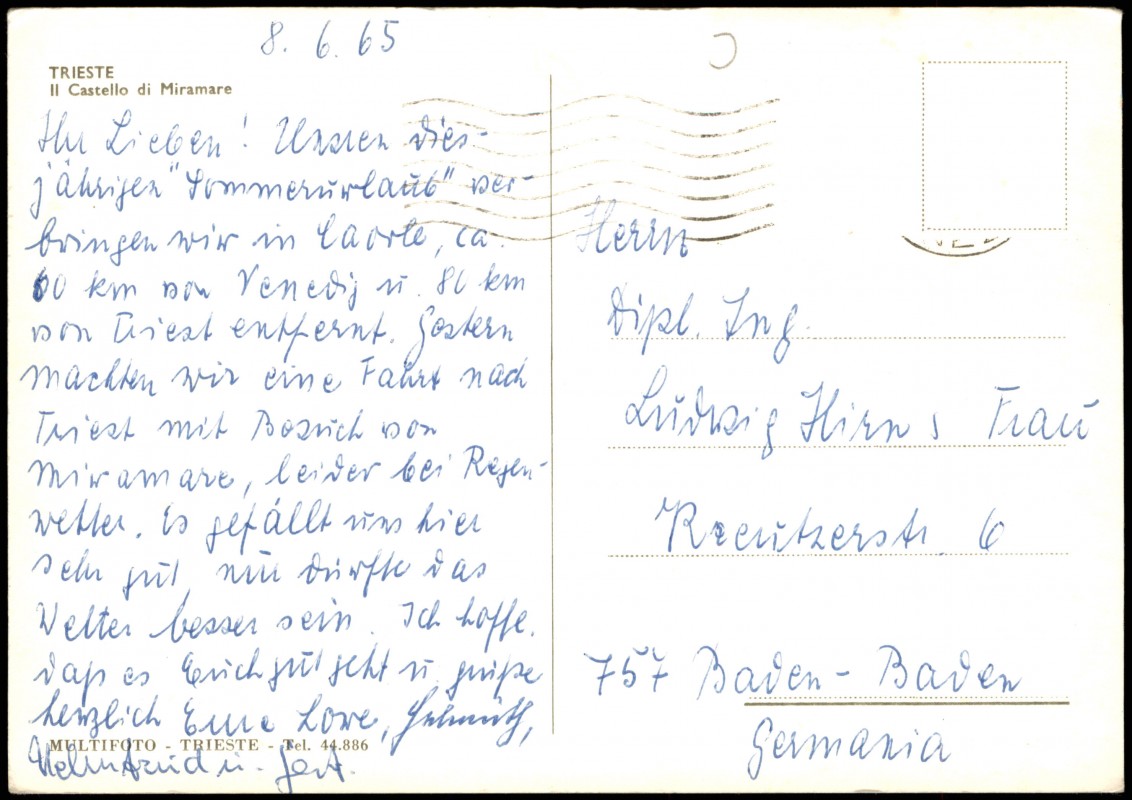 8. 6. 65
TRIESTE
Il Castello di Miramare
Ihr Lieben! Unsren dies-
jährigen "Sommerurlaub" ver-
bringen wir in Caorle, ca.
60 km von Venedig u. 80 km
von Triest entfernt. Gestern
machten wir eine Fahrt nach
Triest mit Besuch von
Miramare, leider bei Regen-
wetter. Es gefällt uns hier
sehr gut, nur dürfte das
Wetter besser sein. Ich hoffe,
daß es Euch gut geht u. grüße
herzlich Eure Lore, Helmuth,
Helmtrud u. Gert.
MULTIFOTO - TRIESTE - Tel. 44.886
Herrn
Dipl. Ing.
Ludwig Hirn u Frau
Kreutzerstr. 6
757 Baden-Baden
Germania